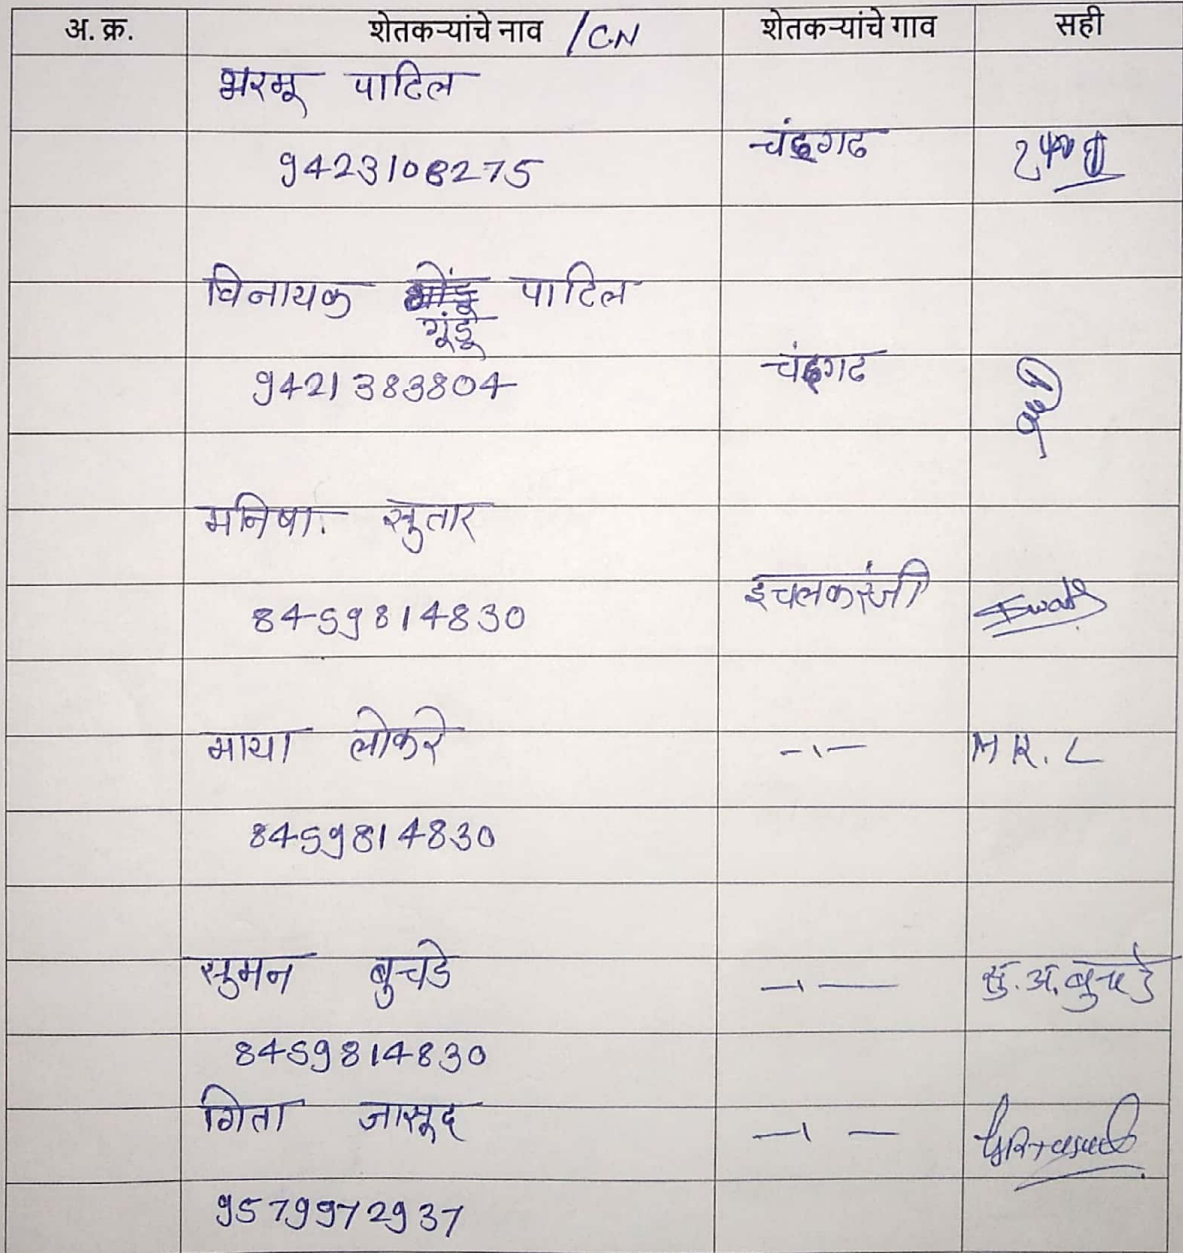 अ. क्र. शेतकऱ्यांचे नाव /C.N शेतकऱ्यांचे गाव सही
भरमू पाटिल
9423108275 चंदगढ
विनायक गूंडू पाटिल
9421383804 चंदगढ
मनिषा. सुतार
8459814830 इचलकरंजी
माया लोकरे -ı- M R. L
8459814830
सुमन बुचडे -ı- सु. अ. बुचडे
8459814830
गिता जासूद -ı-
9579972937